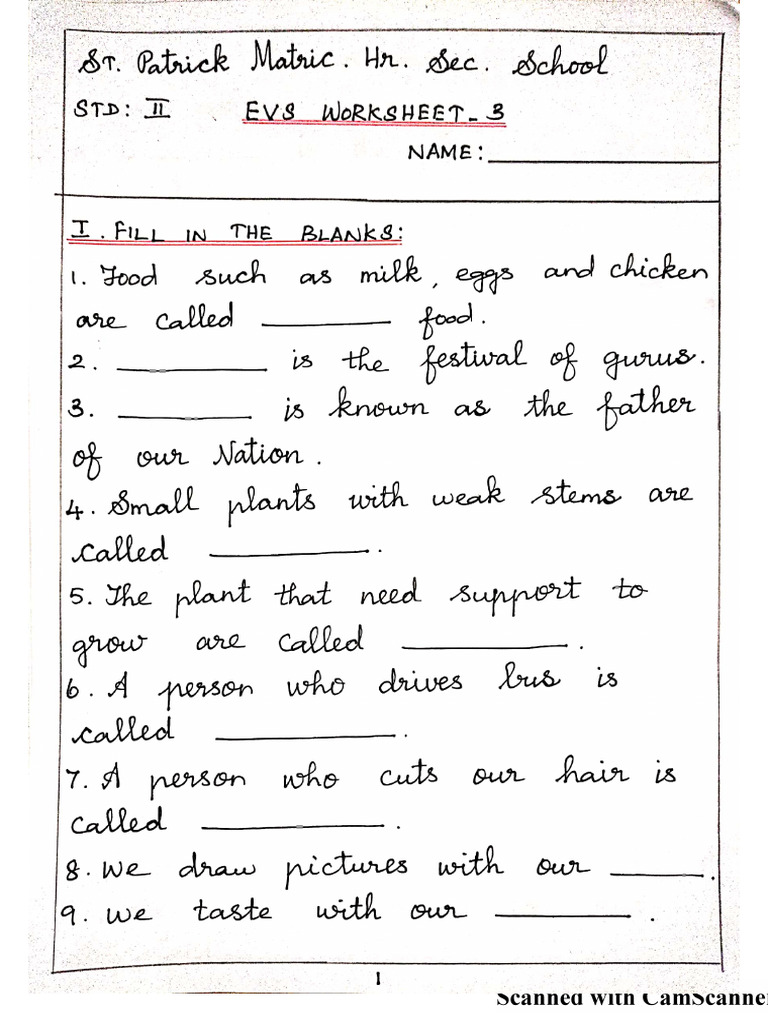 St. Patrick Matric. Hr. Sec. School
STD: II EVS WORKSHEET-3
NAME:
I. FILL IN THE BLANKS:
1. Food such as milk, eggs and chicken
are called __________ food.
2. __________ is the festival of gurus.
3. __________ is known as the father
of our Nation.
4. Small plants with weak stems are
called __________.
5. The plant that need support to
grow are called __________.
6. A person who drives bus is
called __________.
7. A person who cuts our hair is
called __________.
8. We draw pictures with our ______.
9. We taste with our ________.
1
Scanned with CamScanner